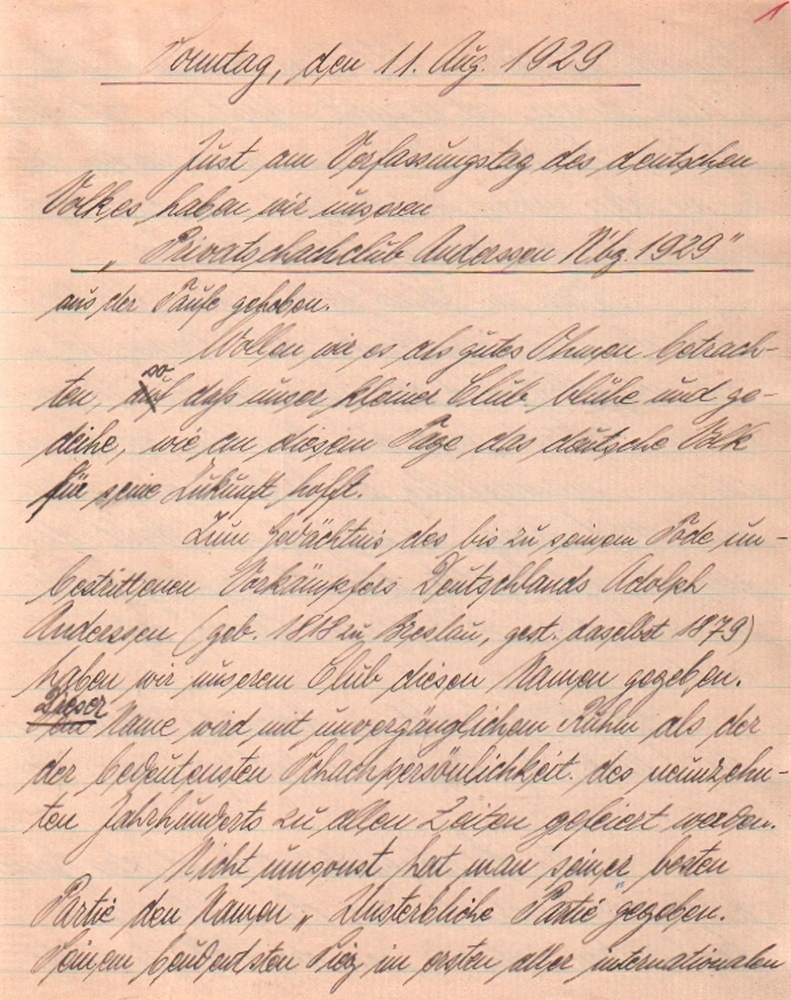 1
Sonntag, den 11. Aug. 1929
Just am Verfassungstag des deutschen
Volkes haben wir unseren
„Privatschachclub Anderssen Nbg. 1929"
aus der Taufe gehoben.
Wollen wir es als gutes Ohmen betrach-
ten, so daß unser kleiner Club blühe und ge-
deihe, wie an diesem Tage das deutsche Volk
für seine Zukunft hofft.
Zum Gedächtnis des bis zu seinem Tode un-
bestrittenen Vorkämpfers Deutschlands Adolph
Anderssen (geb. 1818 zu Breslau, gest. daselbst 1879)
haben wir unserem Club diesen Namen gegeben.
Dieser Name wird mit unvergänglichem Ruhm als der
der bedeutensten Schachpersönlichkeit des neunzehn-
ten Jahrhunderts zu allen Zeiten gefeiert werden.
Nicht umsonst hat man seiner besten
Partie den Namen „Unsterbliche Partie" gegeben.
Seinem Sieg im ersten aller internationalen